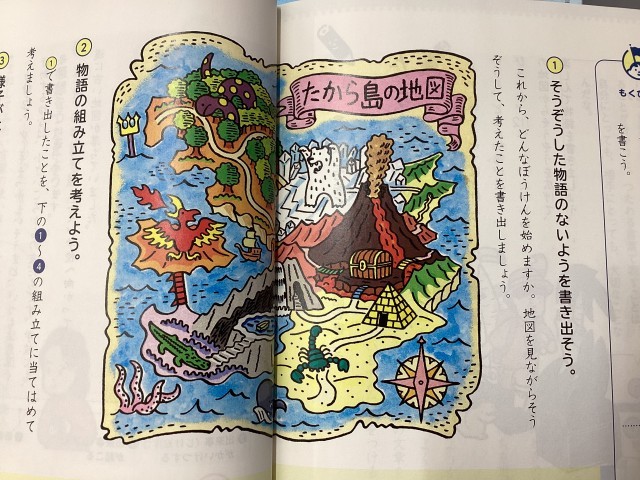 を書こう。
① そうぞうした物語のないようを書き出そう。
これから、どんなぼうけんを始めますか。地図を見ながらそう
ぞうして、考えたことを書き出しましょう。
たから島の地図
② 物語の組み立てを考えよう。
①で書き出したことを、下の❶〜❹の組み立てに当てはめて
考えましょう。